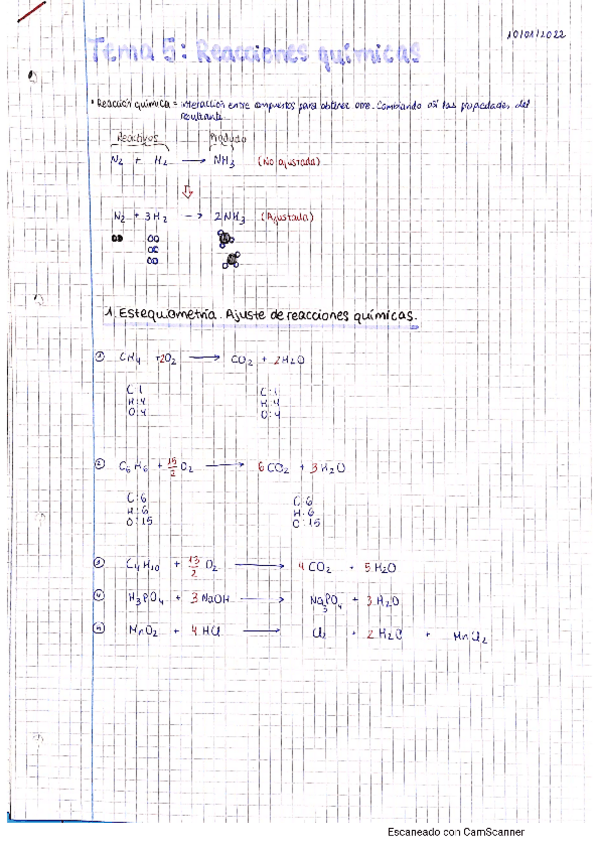 10/01/2022
Tema 5: Reacciones químicas
• Reacción química = interacción entre compuestos para obtener otro. Cambiando así las propiedades del
resultante.
Reactivos Producto
N₂ + H₂ → NH₃ (No ajustada)
N₂ + 3H₂ → 2NH₃ (Ajustada)
1. Estequiometría. Ajuste de reacciones químicas.
① CH₄ + 2O₂ → CO₂ + 2H₂O
C:1 C:1
H:4 H:4
O:4 O:4
② C₆H₆ + 15/2 O₂ → 6CO₂ + 3H₂O
C:6 C:6
H:6 H:6
O:15 O:15
③ C₄H₁₀ + 13/2 O₂ → 4CO₂ + 5H₂O
④ H₃PO₄ + 3NaOH → Na₃PO₄ + 3H₂O
⑤ MnO₂ + 4HCl → Cl₂ + 2H₂O + MnCl₂
Escaneado con CamScanner